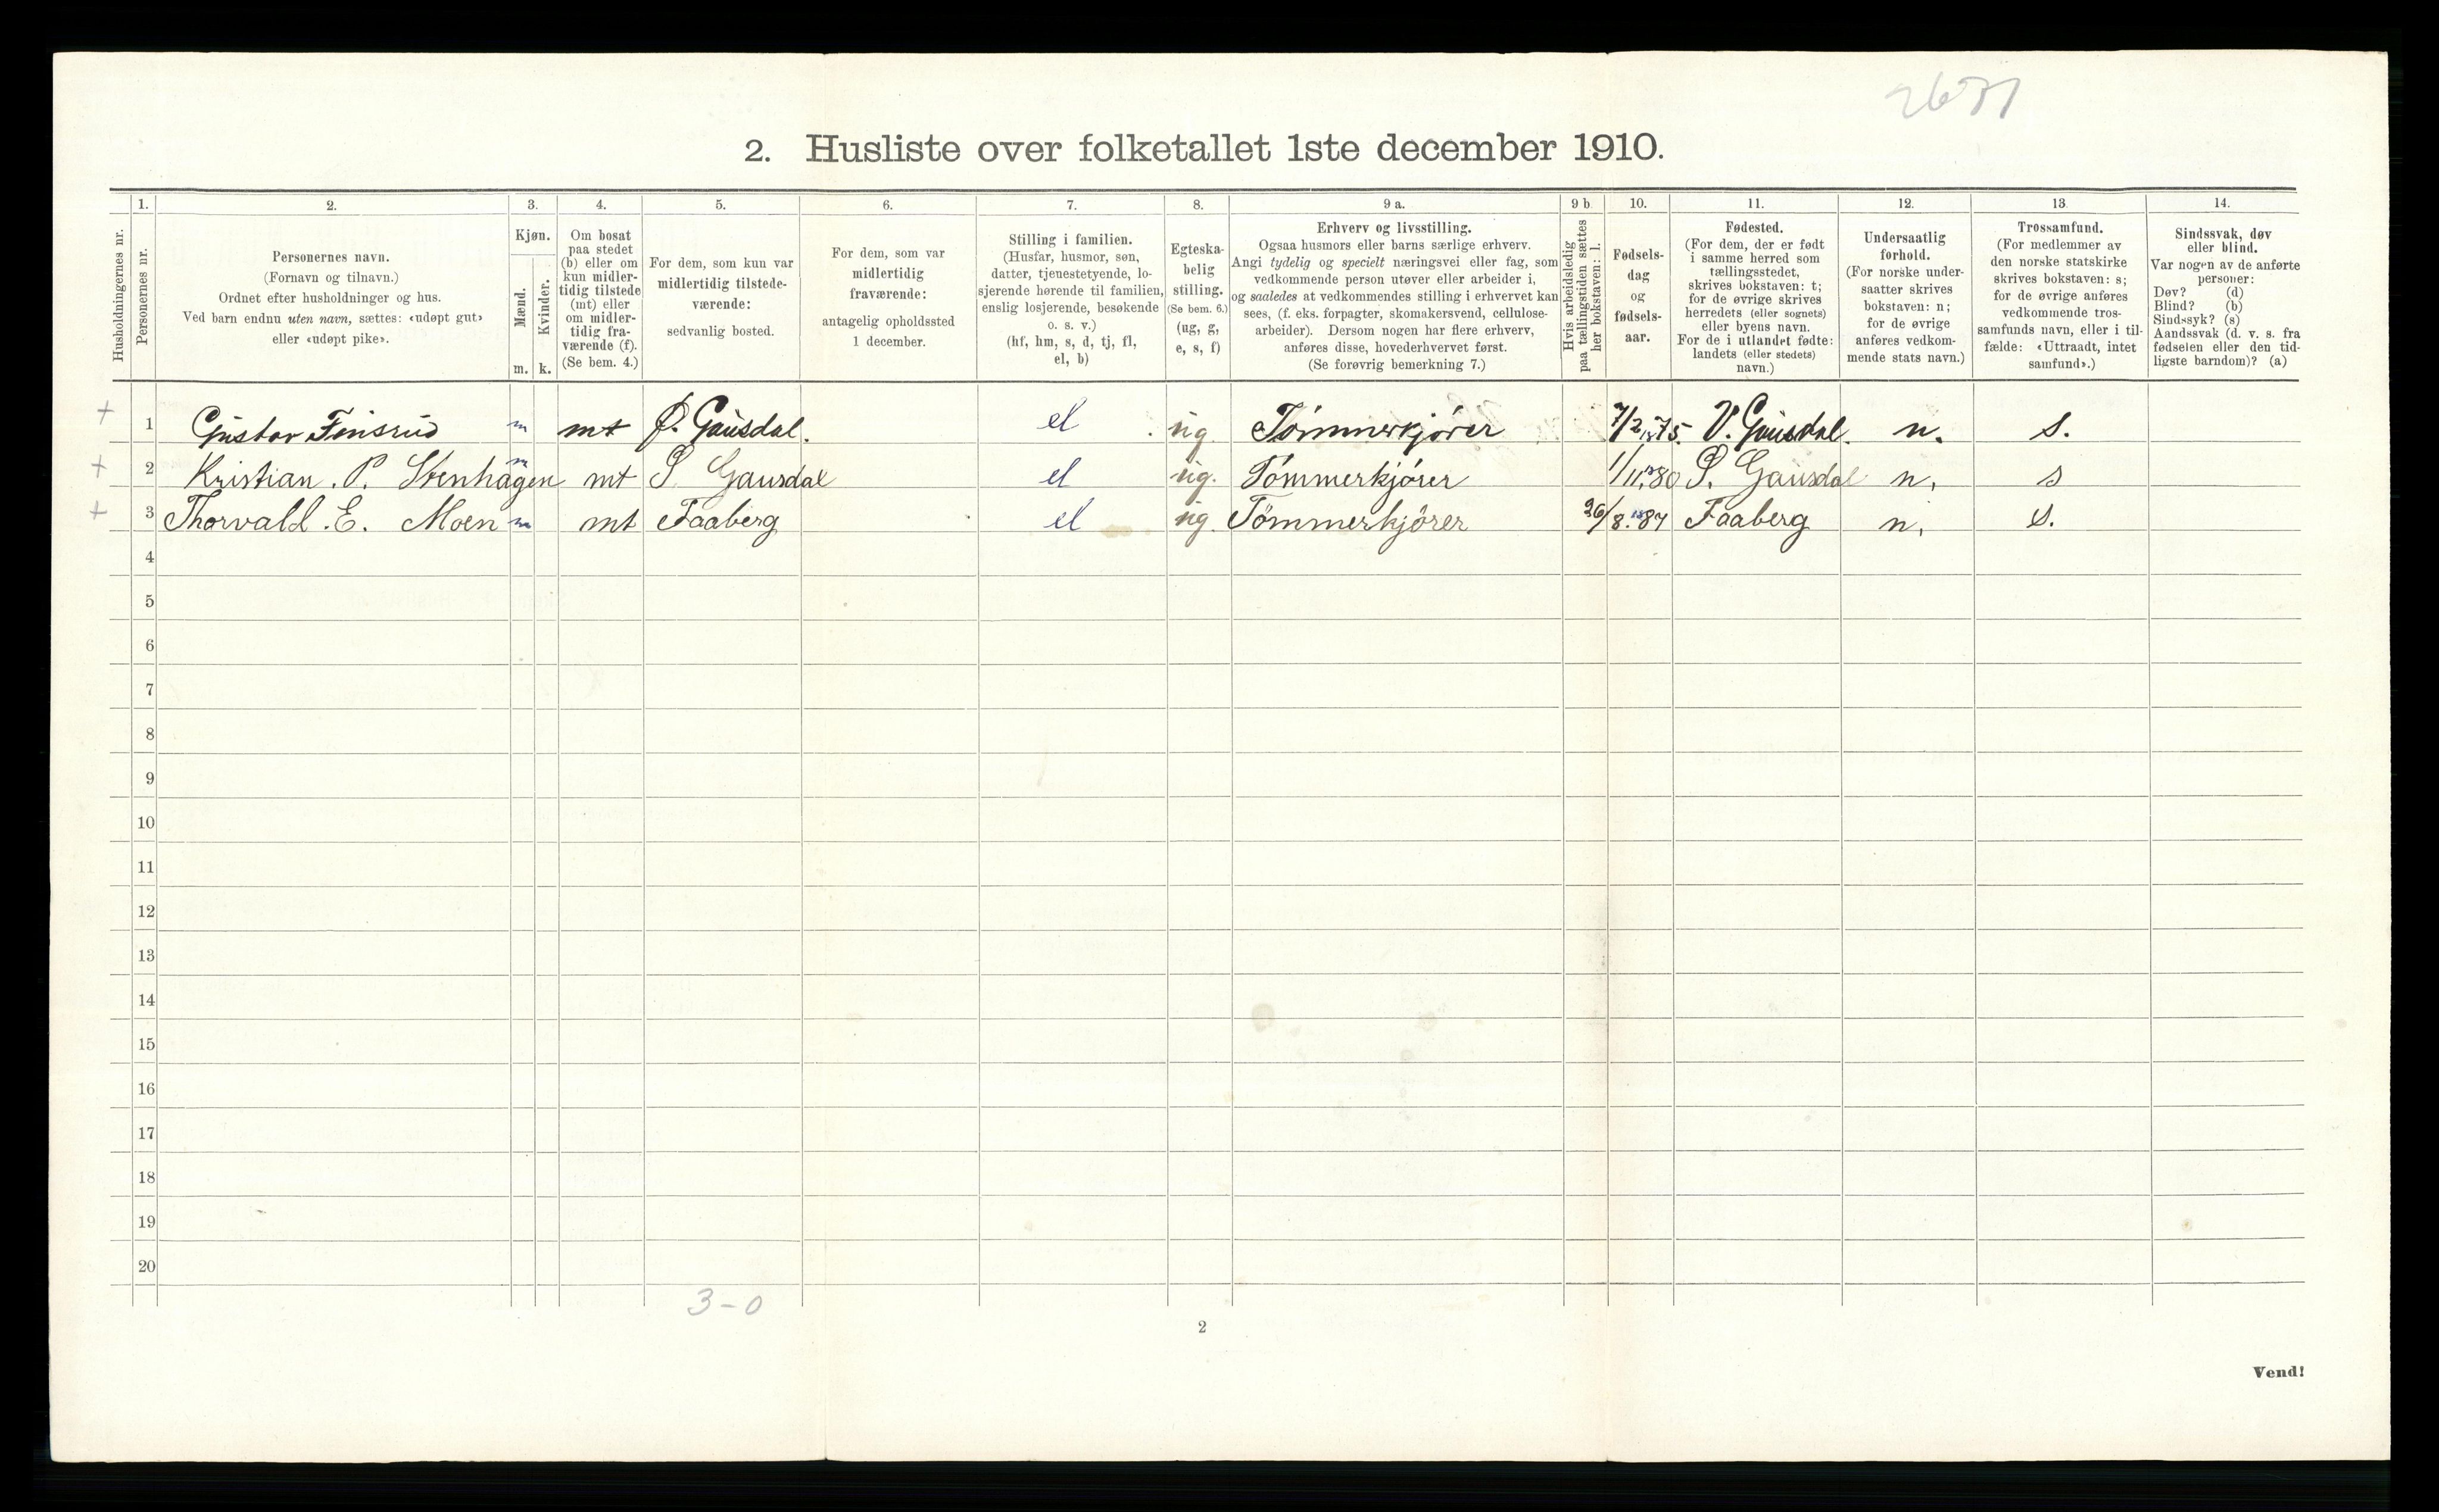 2631
2. Husliste over folketallet 1ste december 1910.
Husholdningernes nr.
1.
Personernes nr.
2.
Personernes navn.
(Fornavn og tilnavn.)
Ordnet efter husholdninger og hus.
Ved barn endnu uten navn, sættes: «udøpt gut»
eller «udøpt pike».
3.
Kjøn.
Mænd.
Kvinder.
m. k.
4.
Om bosat
paa stedet
(b) eller om
kun midler-
tidig tilstede
(mt) eller
om midler-
tidig fra-
værende (f).
(Se bem. 4.)
5.
For dem, som kun var
midlertidig tilstede-
værende:
sedvanlig bosted.
6.
For dem, som var
midlertidig
fraværende:
antagelig opholdssted
1 december.
7.
Stilling i familien.
(Husfar, husmor, søn,
datter, tjenestetyende, lo-
sjerende hørende til familien,
enslig losjerende, besøkende
o. s. v.)
(hf, hm, s, d, tj, fl,
el, b)
8.
Egteska-
belig
stilling.
(Se bem. 6.)
(ug, g,
e, s, f)
9 a.
Erhverv og livsstilling.
Ogsaa husmors eller barns særlige erhverv.
Angi tydelig og specielt næringsvei eller fag, som
vedkommende person utøver eller arbeider i,
og saaledes at vedkommendes stilling i erhvervet kan
sees, (f. eks. forpagter, skomakersvend, cellulose-
arbeider). Dersom nogen har flere erhverv,
anføres disse, hovederhvervet først.
(Se forøvrig bemerkning 7.)
9 b
Hvis arbeidsledig
paa tællingstiden sættes
her bokstaven: l.
10.
Fødsels-
dag
og
fødsels-
aar.
11.
Fødested.
(For dem, der er født
i samme herred som
tællingsstedet,
skrives bokstaven: t;
for de øvrige skrives
herredets (eller sognets)
eller byens navn.
For de i utlandet fødte:
landets (eller stedets)
navn.)
12.
Undersaatlig
forhold.
(For norske under-
saatter skrives
bokstaven: n;
for de øvrige
anføres vedkom-
mende stats navn.)
13.
Trossamfund.
(For medlemmer av
den norske statskirke
skrives bokstaven: s;
for de øvrige anføres
vedkommende tros-
samfunds navn, eller i til-
fælde: «Uttraadt, intet
samfund».)
14.
Sindssvak, døv
eller blind.
Var nogen av de anførte
personer:
Døv? (d)
Blind? (b)
Sindssyk? (s)
Aandssvak (d. v. s. fra
fødselen eller den tid-
ligste barndom)? (a)
+ 1 Gustav Finsrud m mt Ø. Gausdal. el ug. Tømmerkjører 7/2 1875. V. Gausdal. n. s.
+ 2 Kristian. P. Stenhagen m mt Ø Gausdal el ug. Tømmerkjører 1/11 1880 Ø. Gausdal n. s
+ 3 Thorvald. E. Moen m mt Faaberg el ug. Tømmerkjører 26/8. 1887 Faaberg n. s.
4
5
6
7
8
9
10
11
12
13
14
15
16
17
18
19
20
3-0
2
Vend!